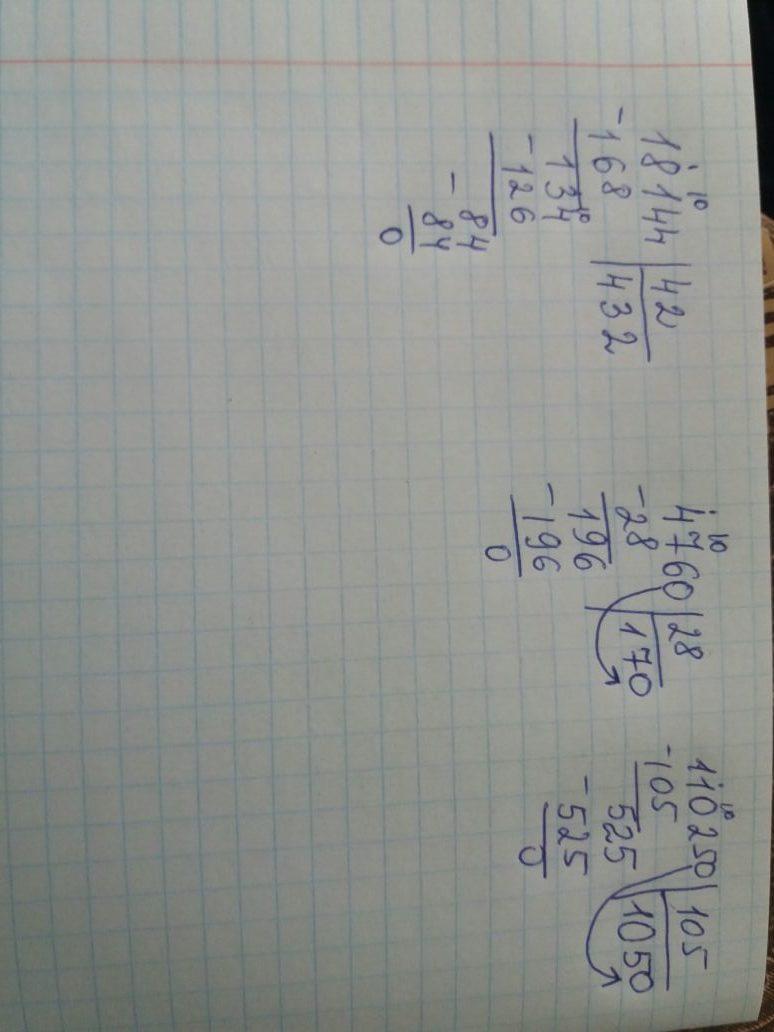 18144 | 42
-168 | 432
134
-126
84
- 84
0
4760 | 28
-28 | 170
196
-196
0
110250 | 105
-105 | 1050
525
-525
0